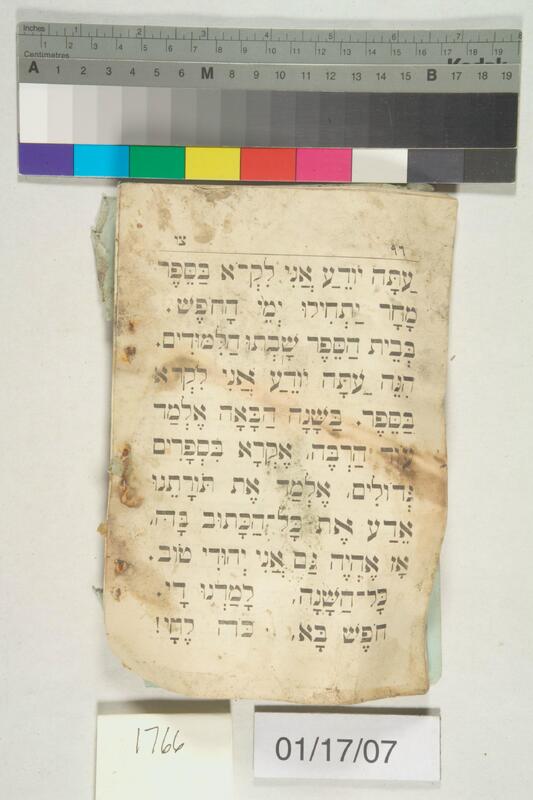 Inches 1 2 3 4 5 6 7 8
Centimetres 1 2 3 4 5 6 7 8 9 10 11 12 13 14 15 16 17 18 19
Kodak
A 1 2 3 4 5 6 M 8 9 10 11 12 13 14 15 B 17 18 19
עַתָּה יוֹדֵעַ אֲנִי לִקְרֹא בַּסֵּפֶר
מָחָר יַתְחִילוּ יְמֵי הַחֹפֶשׁ.
בְּבֵית הַסֵּפֶר שָׁבְתוּ הַלִּמּוּדִים.
הִנֵּה עַתָּה יוֹדֵעַ אֲנִי לִקְרֹא
בַּסֵּפֶר. בַּשָּׁנָה הַבָּאָה אֶלְמַד
עוֹד הַרְבֵּה, אֶקְרָא בִּסְפָרִים
גְּדוֹלִים, אֶלְמַד אֶת תּוֹרָתֵנוּ
אֵדַע אֶת כָּל־הַכָּתוּב בָּהּ,
אָז אֶהְיֶה גַּם אֲנִי יְהוּדִי טוֹב.
כָּל־הַשָּׁנָה, לָמַדְנוּ דָי.
חֹפֶשׁ בָּא, כֹּה לֶחָי!
1766
01/17/07